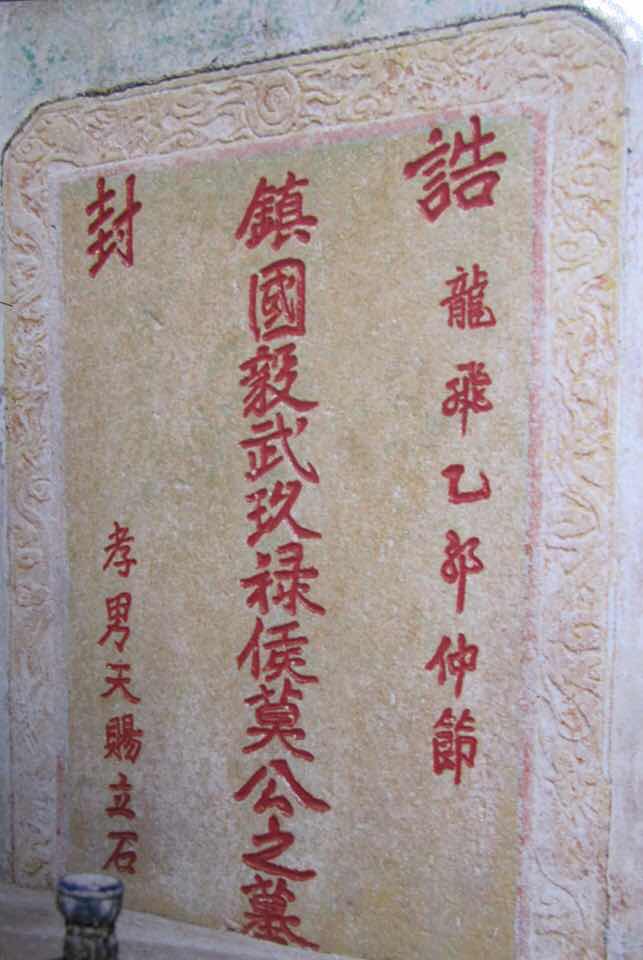 誥
龍飛乙卯仲節
鎮國毅武玖禄侯莫公之墓
封
孝男天賜立石